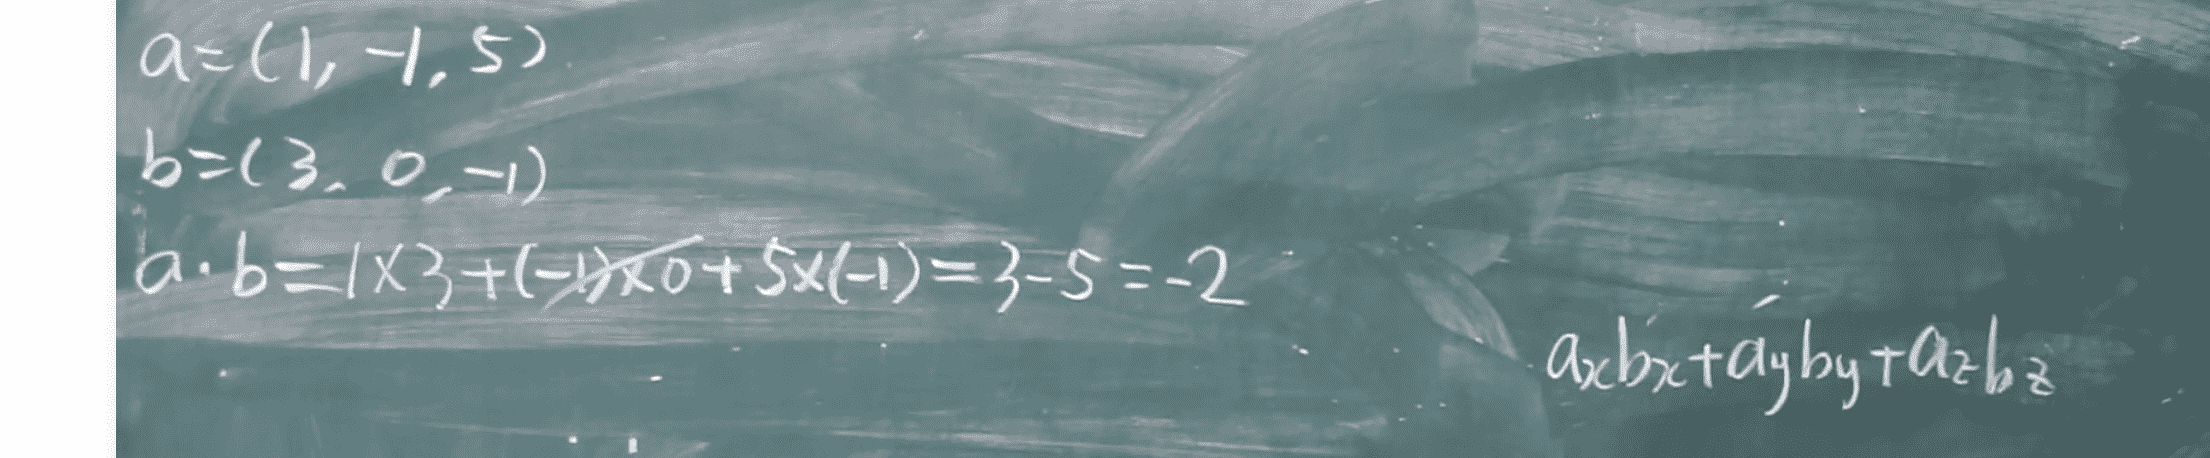 a=(1, -1, 5)
b=(3, 0, -1)
a·b=1×3+(-1)×0+5×(-1)=3-5=-2
axbx+ayby+azbz